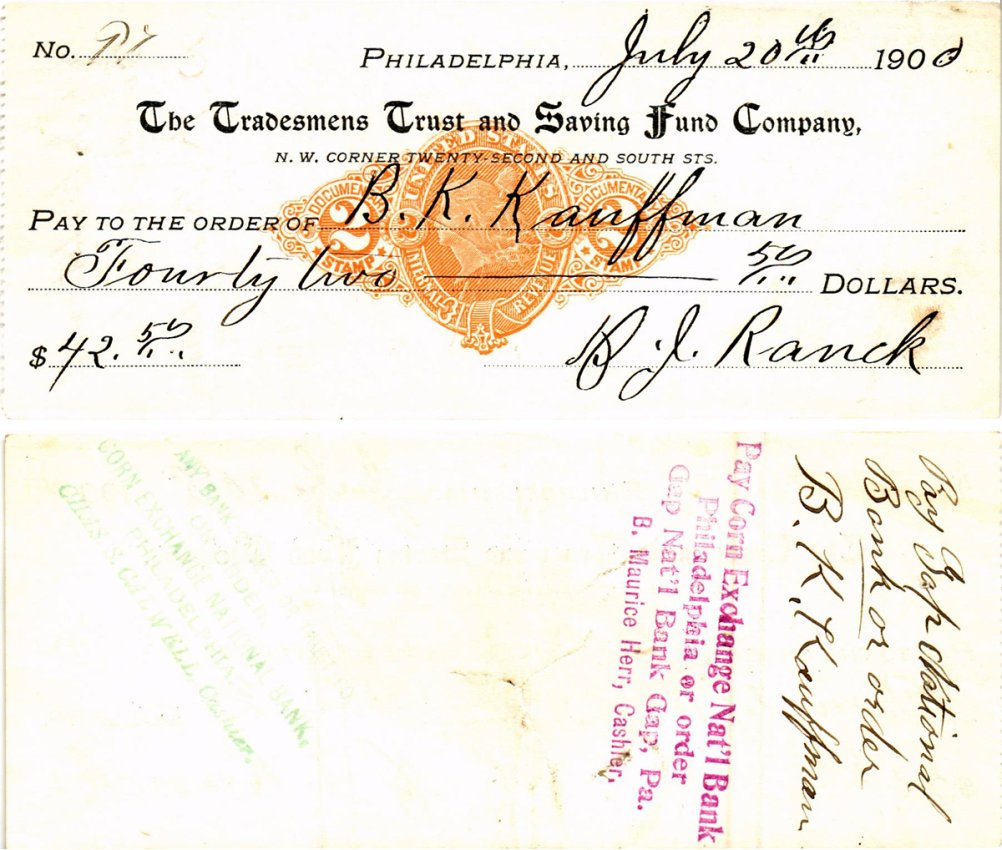 No.
PHILADELPHIA, July 20th 1900
The Tradesmens Trust and Saving Fund Company,
N. W. CORNER TWENTY-SECOND AND SOUTH STS.
UNITED STATES
DOCUMENTARY DOCUMENTARY
PAY TO THE ORDER OF B. K. Kauffman
2 2 2 2
STAMP STAMP
INTERNAL REVENUE
Fourty two 50 DOLLARS.
$42.50
B. J. Ranck
Pay Gap National
Bank or order
B. K. Kauffman
Pay Corn Exchange Nat'l Bank
Philadelphia or order
Gap Nat'l Bank Gap, Pa.
B. Maurice Herr, Cashier,
ANY BANK
CORN EXCHANGE NA BANK,
PHILADELPHIA
Cashier.